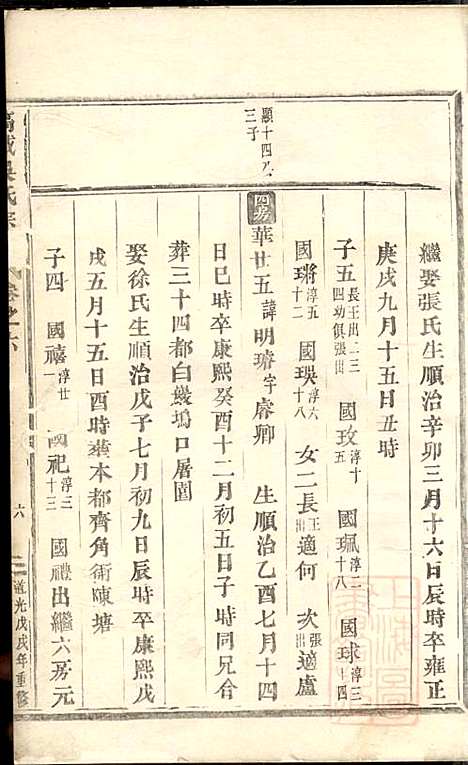 繼娶張氏生順治辛卯三月十六日辰時卒雍正
庚戌九月十五日丑時
子五長王出二三四幼俱張出 國玫淳十五 國珮淳二十八 國球淳三十四
國琳淳五十二 國珙淳六十八 女二長王出適何 次張出適盧
顯十四公三子
四房 華廿五諱明璿字睿卿 生順治乙酉七月十四
日巳時卒康熙癸酉十二月初五日子時同兄合
葬三十四都白巖塢口屠園
娶徐氏生順治戊子七月初九日辰時卒康熙戊
戌五月十五日酉時葬本都齊角衕陳塘
子四 國禧淳廿一 國祀淳三十三 國禮出繼六房元
吳氏宗
卷之六
六
道光戊戌年重修